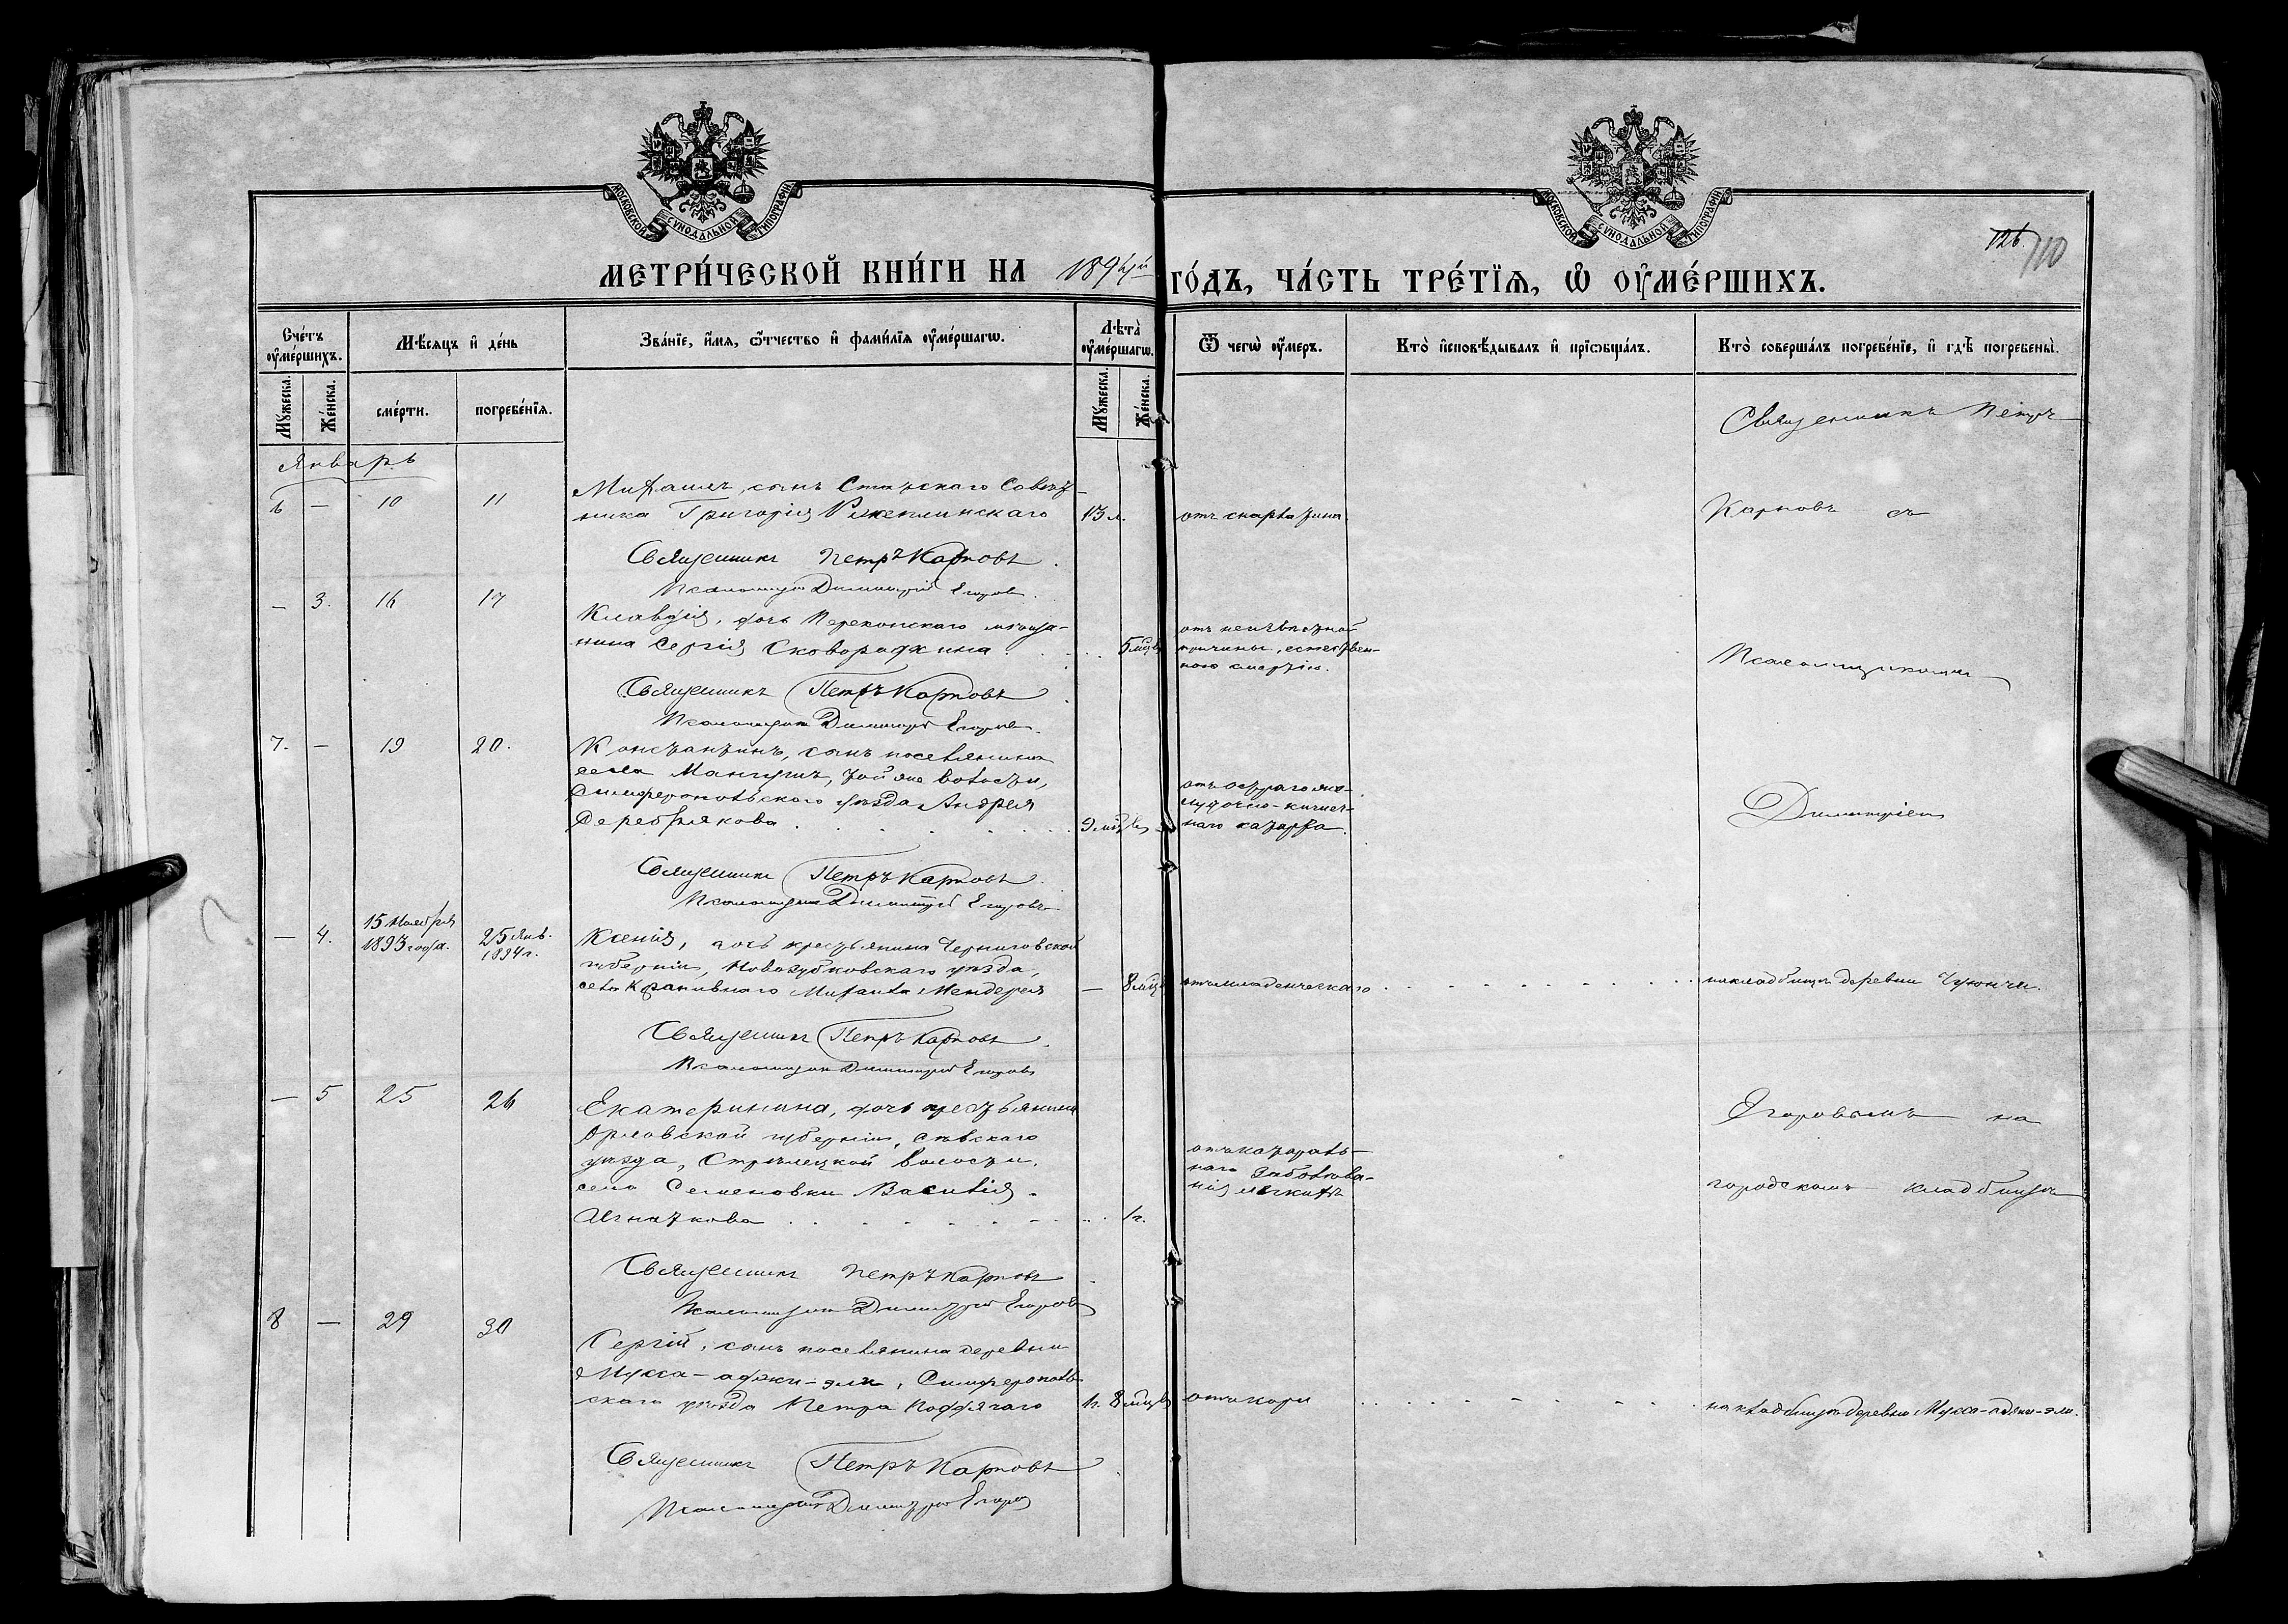 МОСКОВСКОЙ СУНОДАЛЬНОЙ ТИПОГРАФІИ
МОСКОВСКОЙ СУНОДАЛЬНОЙ ТИПОГРАФІИ
126. 110
МЕТРИ́ЧЕСКОЙ КНИ́ГИ НА 1894й ГО́ДЪ, ЧА́СТЬ ТРЕ́ТЇѦ, Ѡ҆ ОУ҆МЕ́РШИХЪ.
Сче́тъ оу҆ме́ршихъ.
Мѣ́сяцъ и҆ де́нь
Зва́нїе, и҆́мя, ѻ҆́тчество и҆ фамилїя оу҆ме́ршагѡ.
Лѣта̀ оу҆ме́ршагѡ.
Ѿ чегѡ̀ оу҆́меръ.
Кто̀ и҆сповѣ́дывалъ и҆ прїѡбща́лъ.
Кто̀ соверша́лъ погребе́нїе, и҆ гдѣ̀ погребены̀.
Мꙋ́жеска.
Же́нска.
сме́рти.
погребе́нїя.
Мꙋ́жеска.
Же́нска.
Священникъ Петръ
Январь
6 — 10 11
Михаилъ, сынъ Статскаго Совѣт-
ника Григорія
13 л.
отъ скарлатины
Карповъ съ
Священникъ Петръ Карповъ.
Псаломщикъ Димитрій Егоровъ.
— 3. 16 17
Клавдія, дочь Перекопскаго мѣща-
нина Сергія Сковородкина
5 мѣцвъ
отъ неизвѣстной
причины, естествен-
ною смертію.
Псаломщикомъ
Священникъ Петръ Карповъ
Псаломщикъ Димитрій Егоровъ.
7. — 19 20.
Константинъ, сынъ поселянина
села Мангушъ, волости,
Симферопольскаго уѣзда Андрея
Серебрякова
9 мѣцвъ
отъ остраго же-
лудочно-кишеч-
наго катарра.
Димитріемъ
Священникъ Петръ Карповъ.
Псаломщикъ Димитрій Егоровъ
— 4. 15 Ноября 1893 года. 25 Янв. 1894 г.
Ксенія, дочь крестьянина Черниговской
губерніи, Новозубковскаго уѣзда,
села Крапивнаго Михаила Мендерея
— 8 мѣцвъ
отъ младенческаго
на кладбищѣ деревни Чуюнчи.
Священникъ Петръ Карповъ.
Псаломщикъ Димитрій Егоровъ
— 5 25 26
Екатерина, дочь крестьянина
Орловской губерніи, Сѣвскаго
уѣзда, Стрѣлецкой волости,
села Семеновки Василія
Игнаткова
1 г.
отъ катараль-
наго
нія легкихъ
Егоровымъ на
городскомъ кладбищѣ
Священникъ Петръ Карповъ
Псаломщикъ Димитрій Егоровъ
8 — 29 30
Сергій, сынъ поселянина деревни
Мусса-аджи-эли, Симферополь-
скаго уѣзда Петра Поддячаго
1 г. 8 мѣцвъ
отъ кори
на кладбищѣ деревни Мусса-аджи-эли.
Священникъ Петръ Карповъ
Псаломщикъ Димитрій Егоровъ